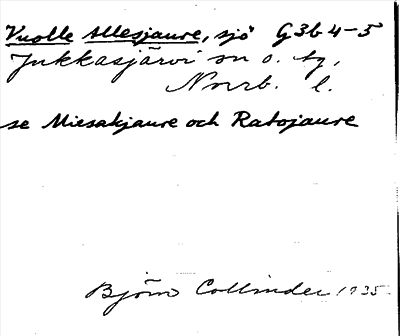 Vuolle Allesjaure, sjö G3b 4-5
Jukkasjärvi sn o. tg,
Norrb. l.
se Miesakjaure och Ratojaure
Björn Collinder 1935